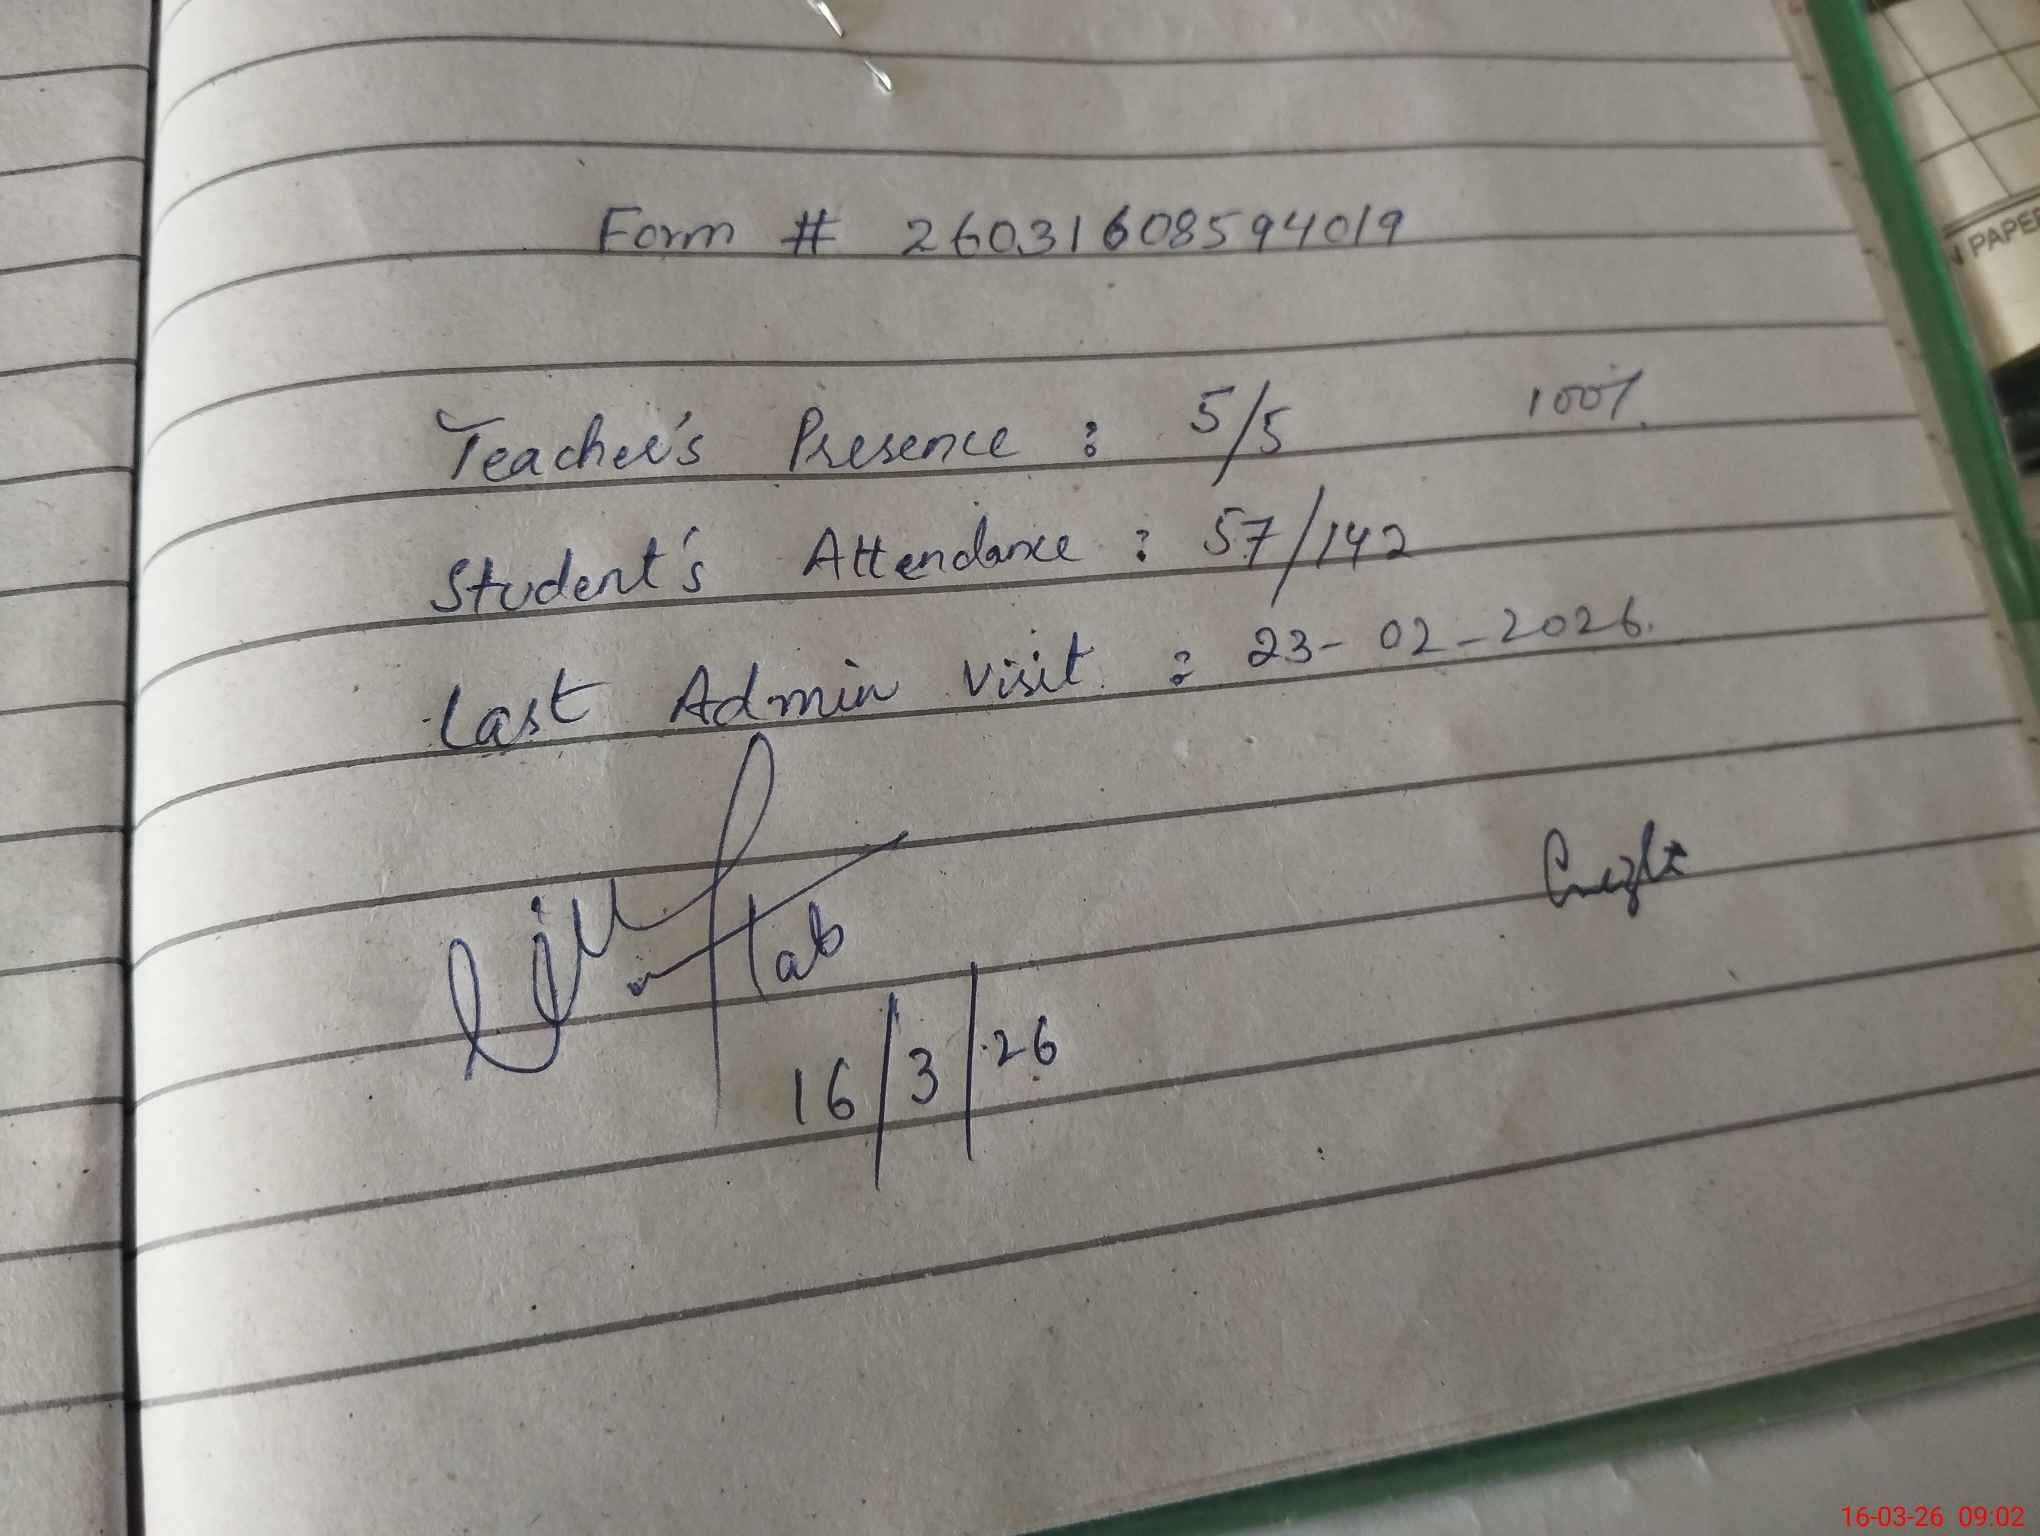 Form # 26031608594019
Teacher's Presence : 5/5 100%
Student's Attendance : 57/142
Last Admin visit : 23-02-2026.
16/3/26
PAPE
16-03-26 09:02